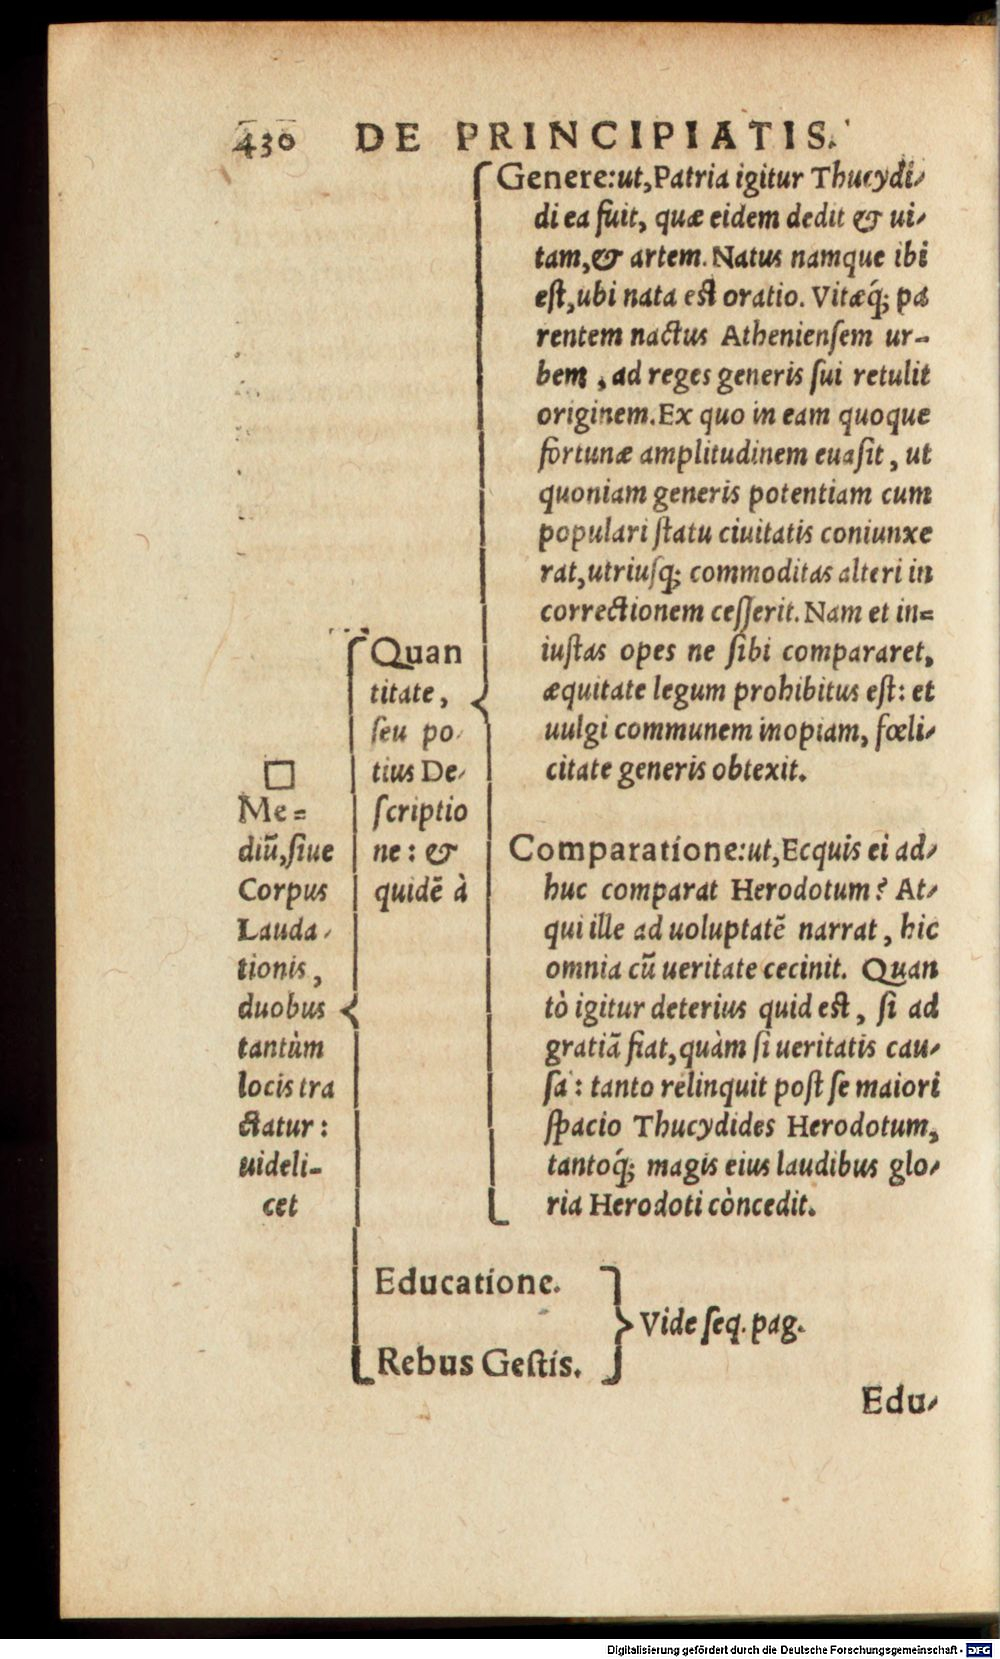 430 DE PRINCIPIATIS.
□
Me=
diū, ſiue
Corpus
Lauda-
tionis,
duobus
tantùm
locis tra
ctatur:
uideli-
cet
Quan
titate,
ſeu po-
tius De-
ſcriptio
ne: &
quidē à
Genere: ut, Patria igitur Thucydi-
di ea fuit, quæ eidem dedit & ui-
tam, & artem. Natus namque ibi
eſt, ubi nata eſt oratio. Vitæq́; pa
rentem nactus Athenienſem ur-
bem, ad reges generis ſui retulit
originem. Ex quo in eam quoque
fortunæ amplitudinem euaſit, ut
quoniam generis potentiam cum
populari ſtatu ciuitatis coniunxe
rat, utriuſq; commoditas alteri in
correctionem ceſſerit. Nam et in=
iuſtas opes ne ſibi compararet,
æquitate legum prohibitus eſt: et
uulgi communem inopiam, fœli-
citate generis obtexit.
Comparatione: ut, Ecquis ei ad-
huc comparat Herodotum? At-
qui ille ad uoluptatē narrat, hic
omnia cū ueritate cecinit. Quan
tò igitur deterius quid eſt, ſi ad
gratiā fiat, quàm ſi ueritatis cau-
ſa: tanto relinquit poſt ſe maiori
ſpacio Thucydides Herodotum,
tantoq́; magis eius laudibus glo-
ria Herodoti còncedit.
Educatione.
Rebus Geſtis.
Vide ſeq. pag.
Edu-
Digitalisierung gefördert durch die Deutsche Forschungsgemeinschaft - DFG